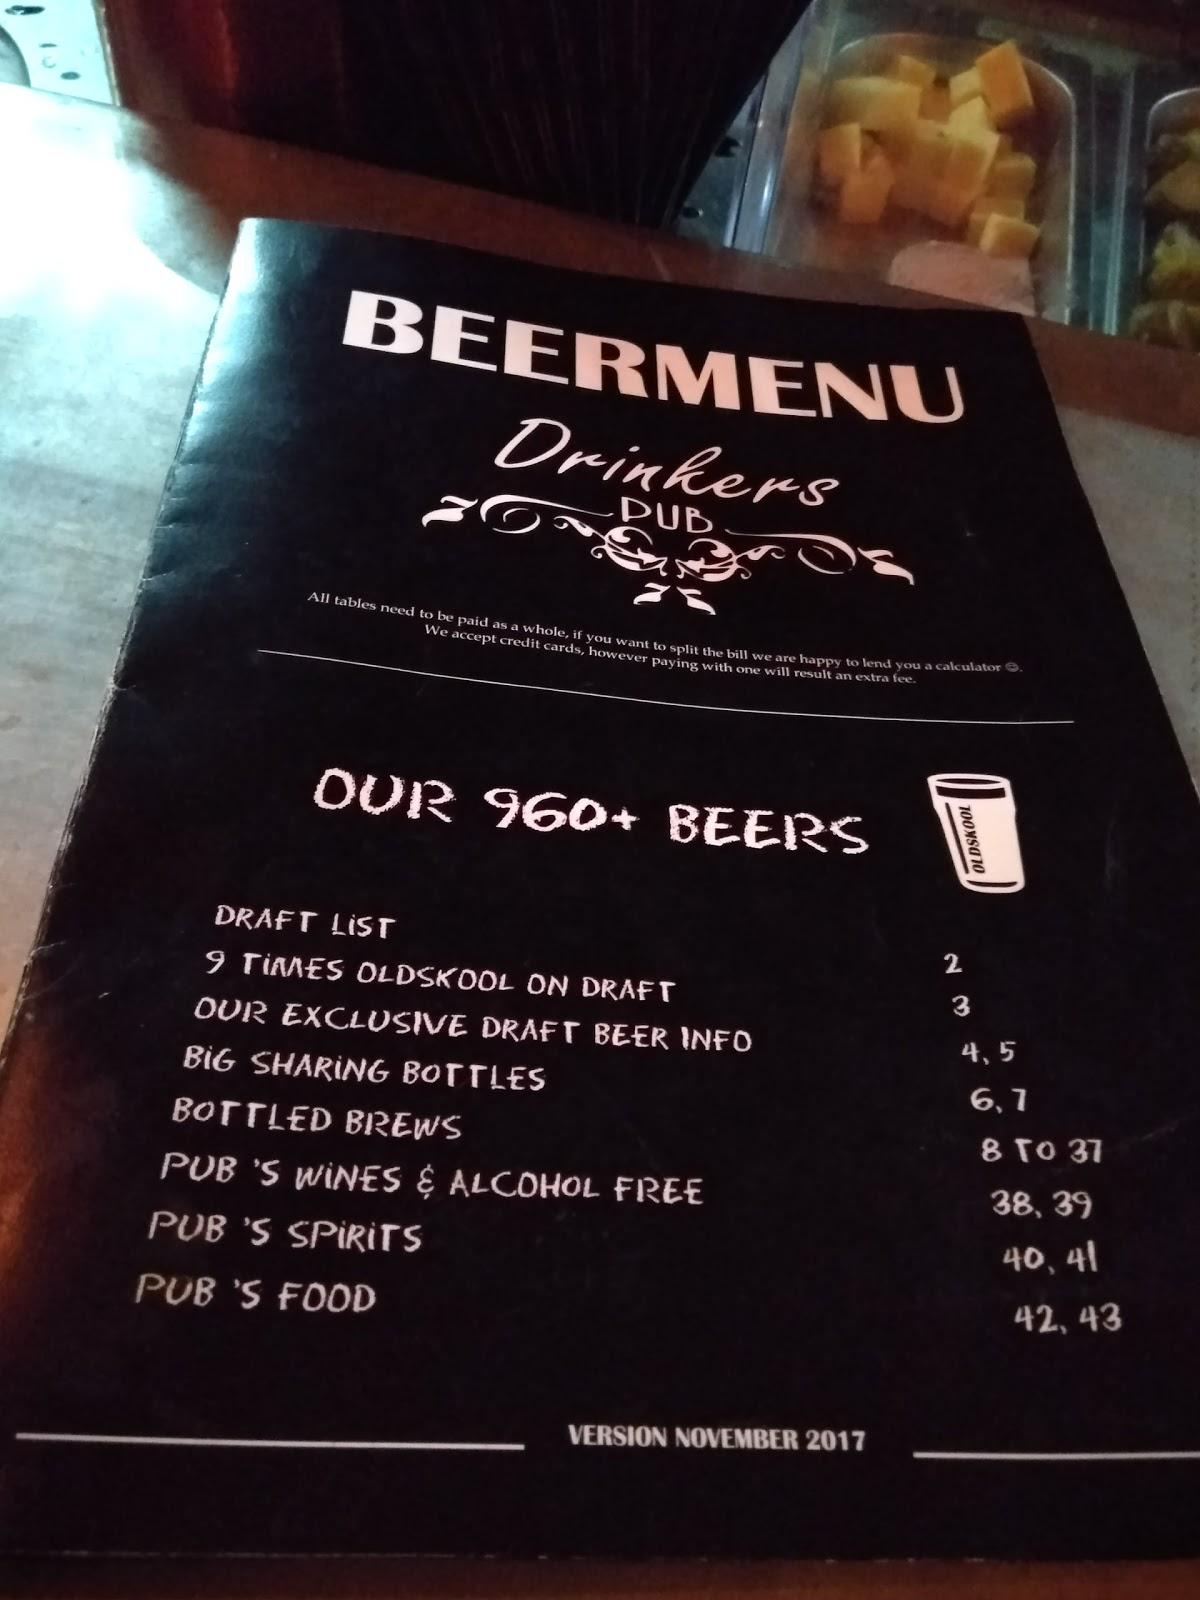 BEERMENU
Drinkers
PUB
All tables need to be paid as a whole, if you want to split the bill we are happy to lend you a calculator ☺.
We accept credit cards, however paying with one will result an extra fee.
OUR 960+ BEERS
OLDSKOOL
DRAFT LIST 2
9 TIMES OLDSKOOL ON DRAFT 3
OUR EXCLUSIVE DRAFT BEER INFO 4, 5
BIG SHARING BOTTLES 6, 7
BOTTLED BREWS 8 TO 37
PUB 'S WINES & ALCOHOL FREE 38, 39
PUB 'S SPIRITS 40, 41
PUB 'S FOOD 42, 43
VERSION NOVEMBER 2017